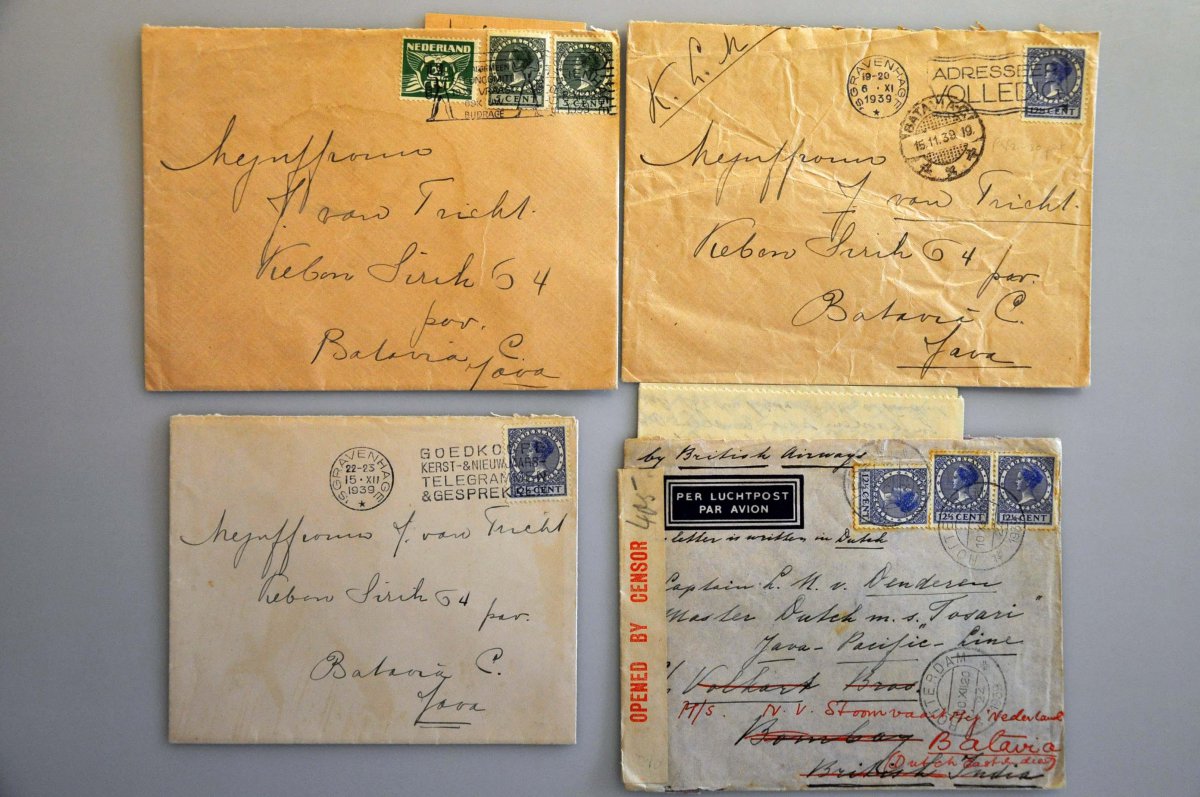 NEDERLAND
CENT
5 CENT
BIJDRAGE
Mejuffrouw
J. van Tricht.
Kebon Sirih 64
pav.
Batavia C.
Java
K.L.M
'S GRAVENHAGE
19-20
6 · XI
1939
ADRESSEER
VOLLEDIG
12½ CENT
BATAVIA
15.11.39.19.
Mejuffrouw
J. van Tricht.
Kebon Sirih 64
pav.
Batavia C.
Java
'S GRAVENHAGE
22-23
15 · XII
1939
GOEDKOOPE
KERST-& NIEUWJAARS-
TELEGRAMMEN
& GESPREKKEN
12½ CENT
Mejuffrouw J. van Tricht
Kebon Sirih 64
pav.
Batavia C.
Java
by British Airways
PER LUCHTPOST
PAR AVION
12½ CENT
12½ CENT
12½ CENT
letter is written in Dutch
OPENED BY CENSOR
405
Captain L. N. v. Denderen
Master Dutch m.s. "Tosari"
Java-Pacific-Line
Volkart Bros
M/s. N.V. Stoomvaart Mij Nederland
Bombay Batavia
(Dutch East Indies)
British India